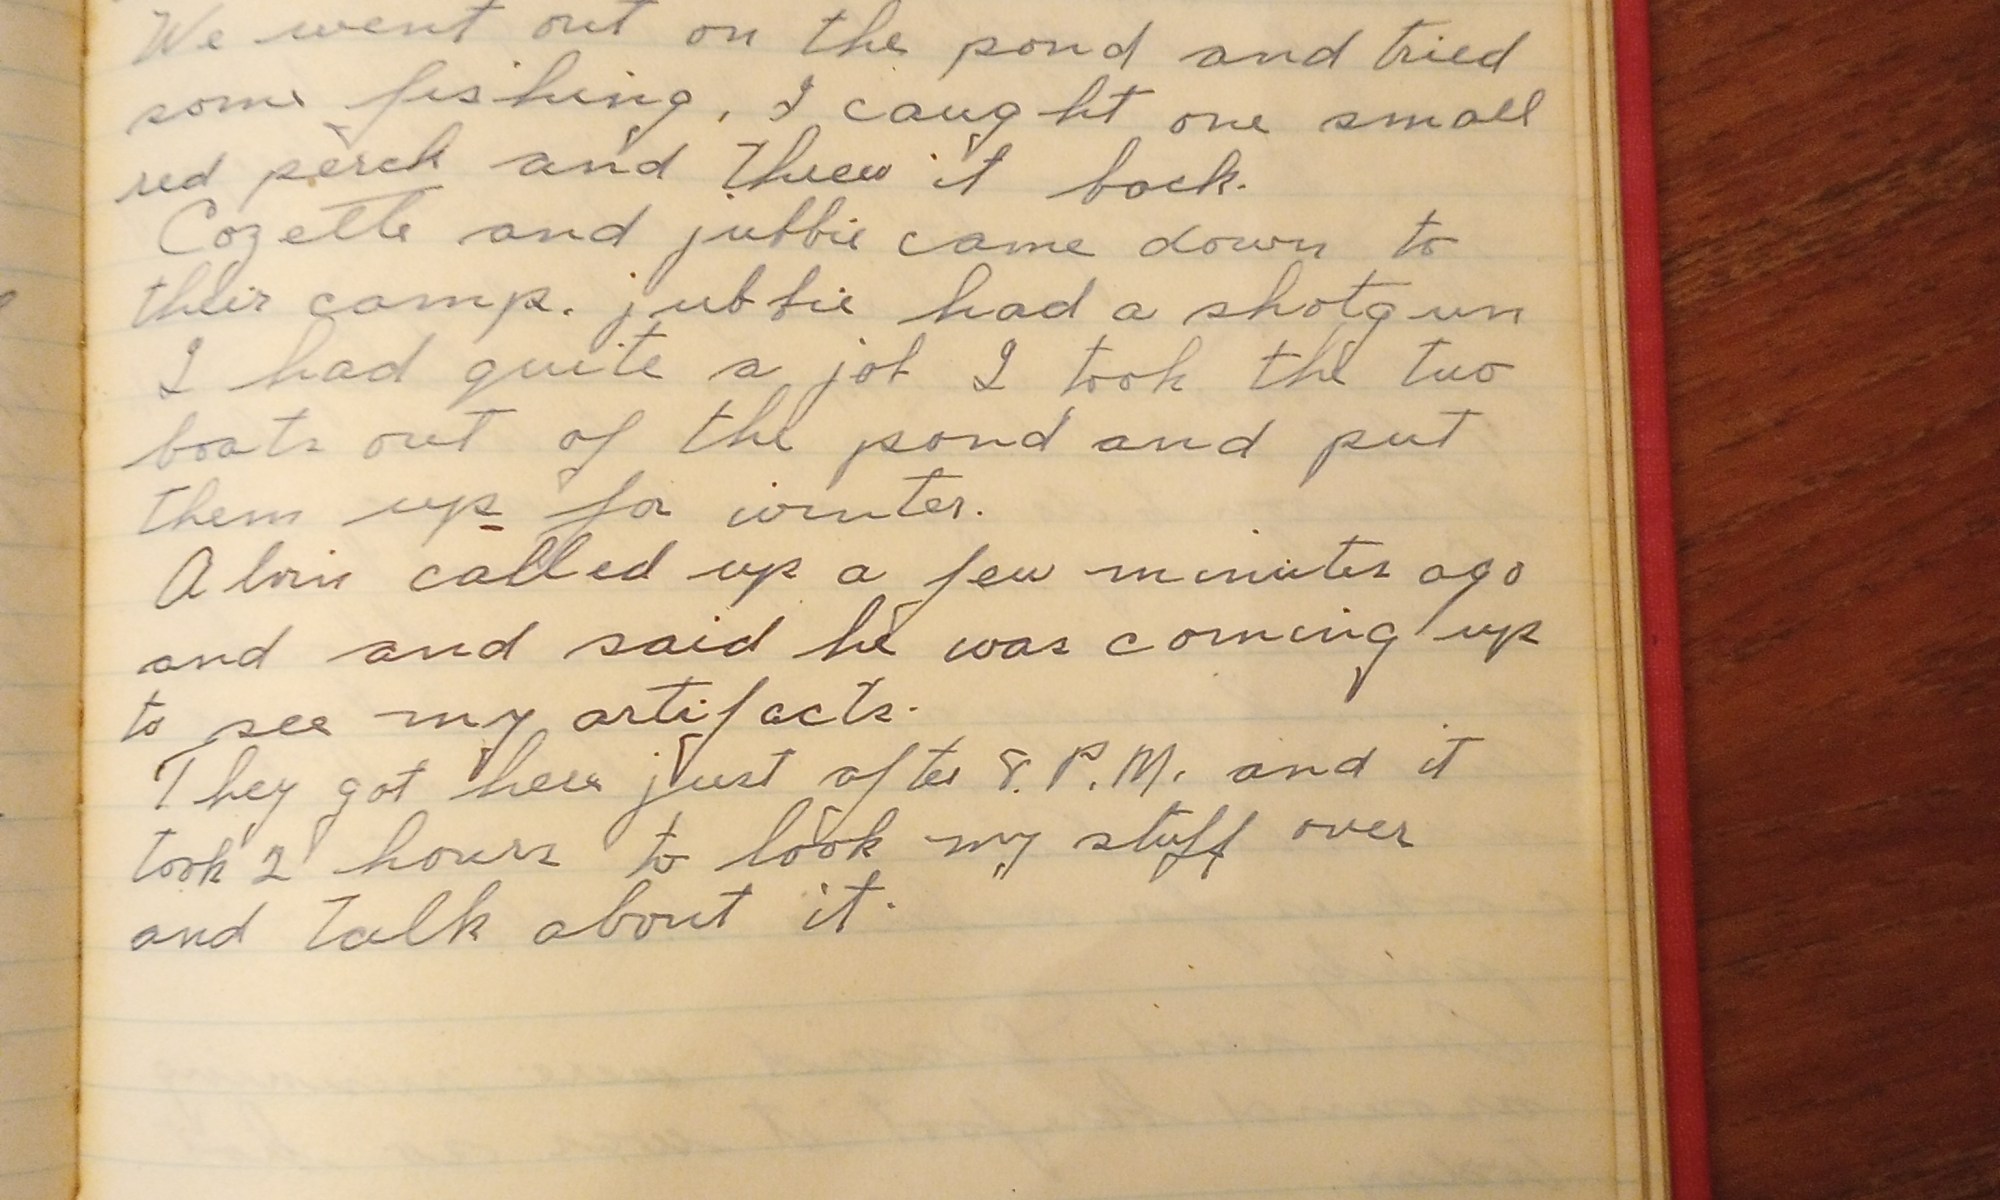 We went out on the pond and tried
some fishing, I caught one small
red perch and threw it back.
Cozette and jubbie came down to
their camp. jubbie had a shotgun
I had quite a job I took the two
boats out of the pond and put
them up for winter.
Alvin called up a few minutes ago
and and said he was coming up
to see my artifacts.
They got here just after 8. P.M. and it
took 2 hours to look my stuff over
and talk about it.